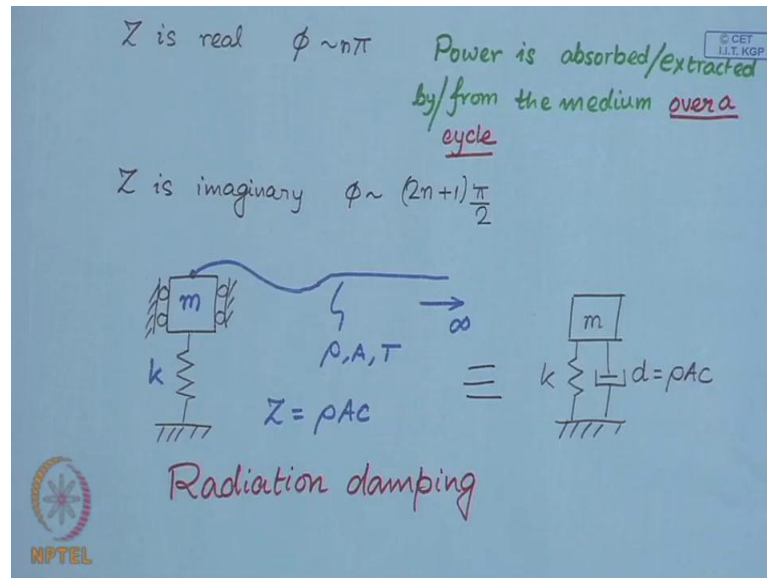 Z is real ϕ ~ nπ
© CET
I.I.T. KGP
Power is absorbed/extracted
by/from the medium over a
cycle
Z is imaginary ϕ ~ (2n+1) π/2
m
k
ρ, A, T
∞
Z = ρAc
≡
m
k
d = ρAc
Radiation damping
NPTEL